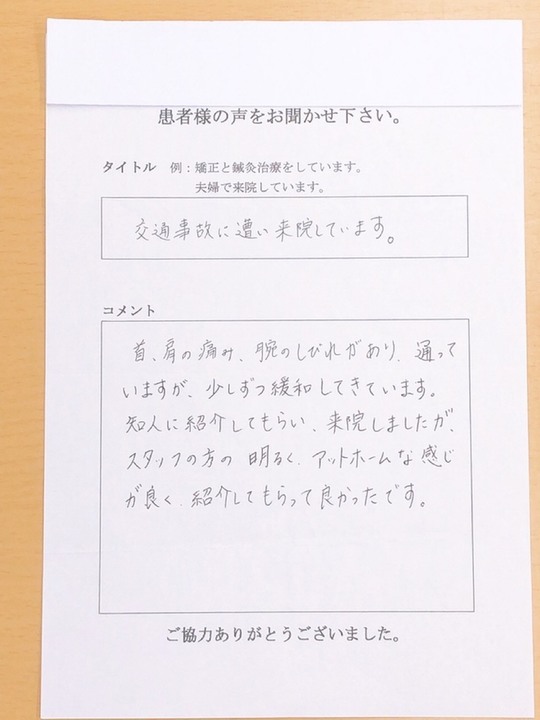 患者様の声をお聞かせ下さい。
タイトル 例：矯正と鍼灸治療をしています。
夫婦で来院しています。
交通事故に遭い来院しています。
コメント
首、肩の痛み、腕のしびれがあり、通って
いますが、少しずつ緩和してきています。
知人に紹介してもらい、来院しましたが、
スタッフの方の明るく、アットホームな感じ
が良く、紹介してもらって良かったです。
ご協力ありがとうございました。